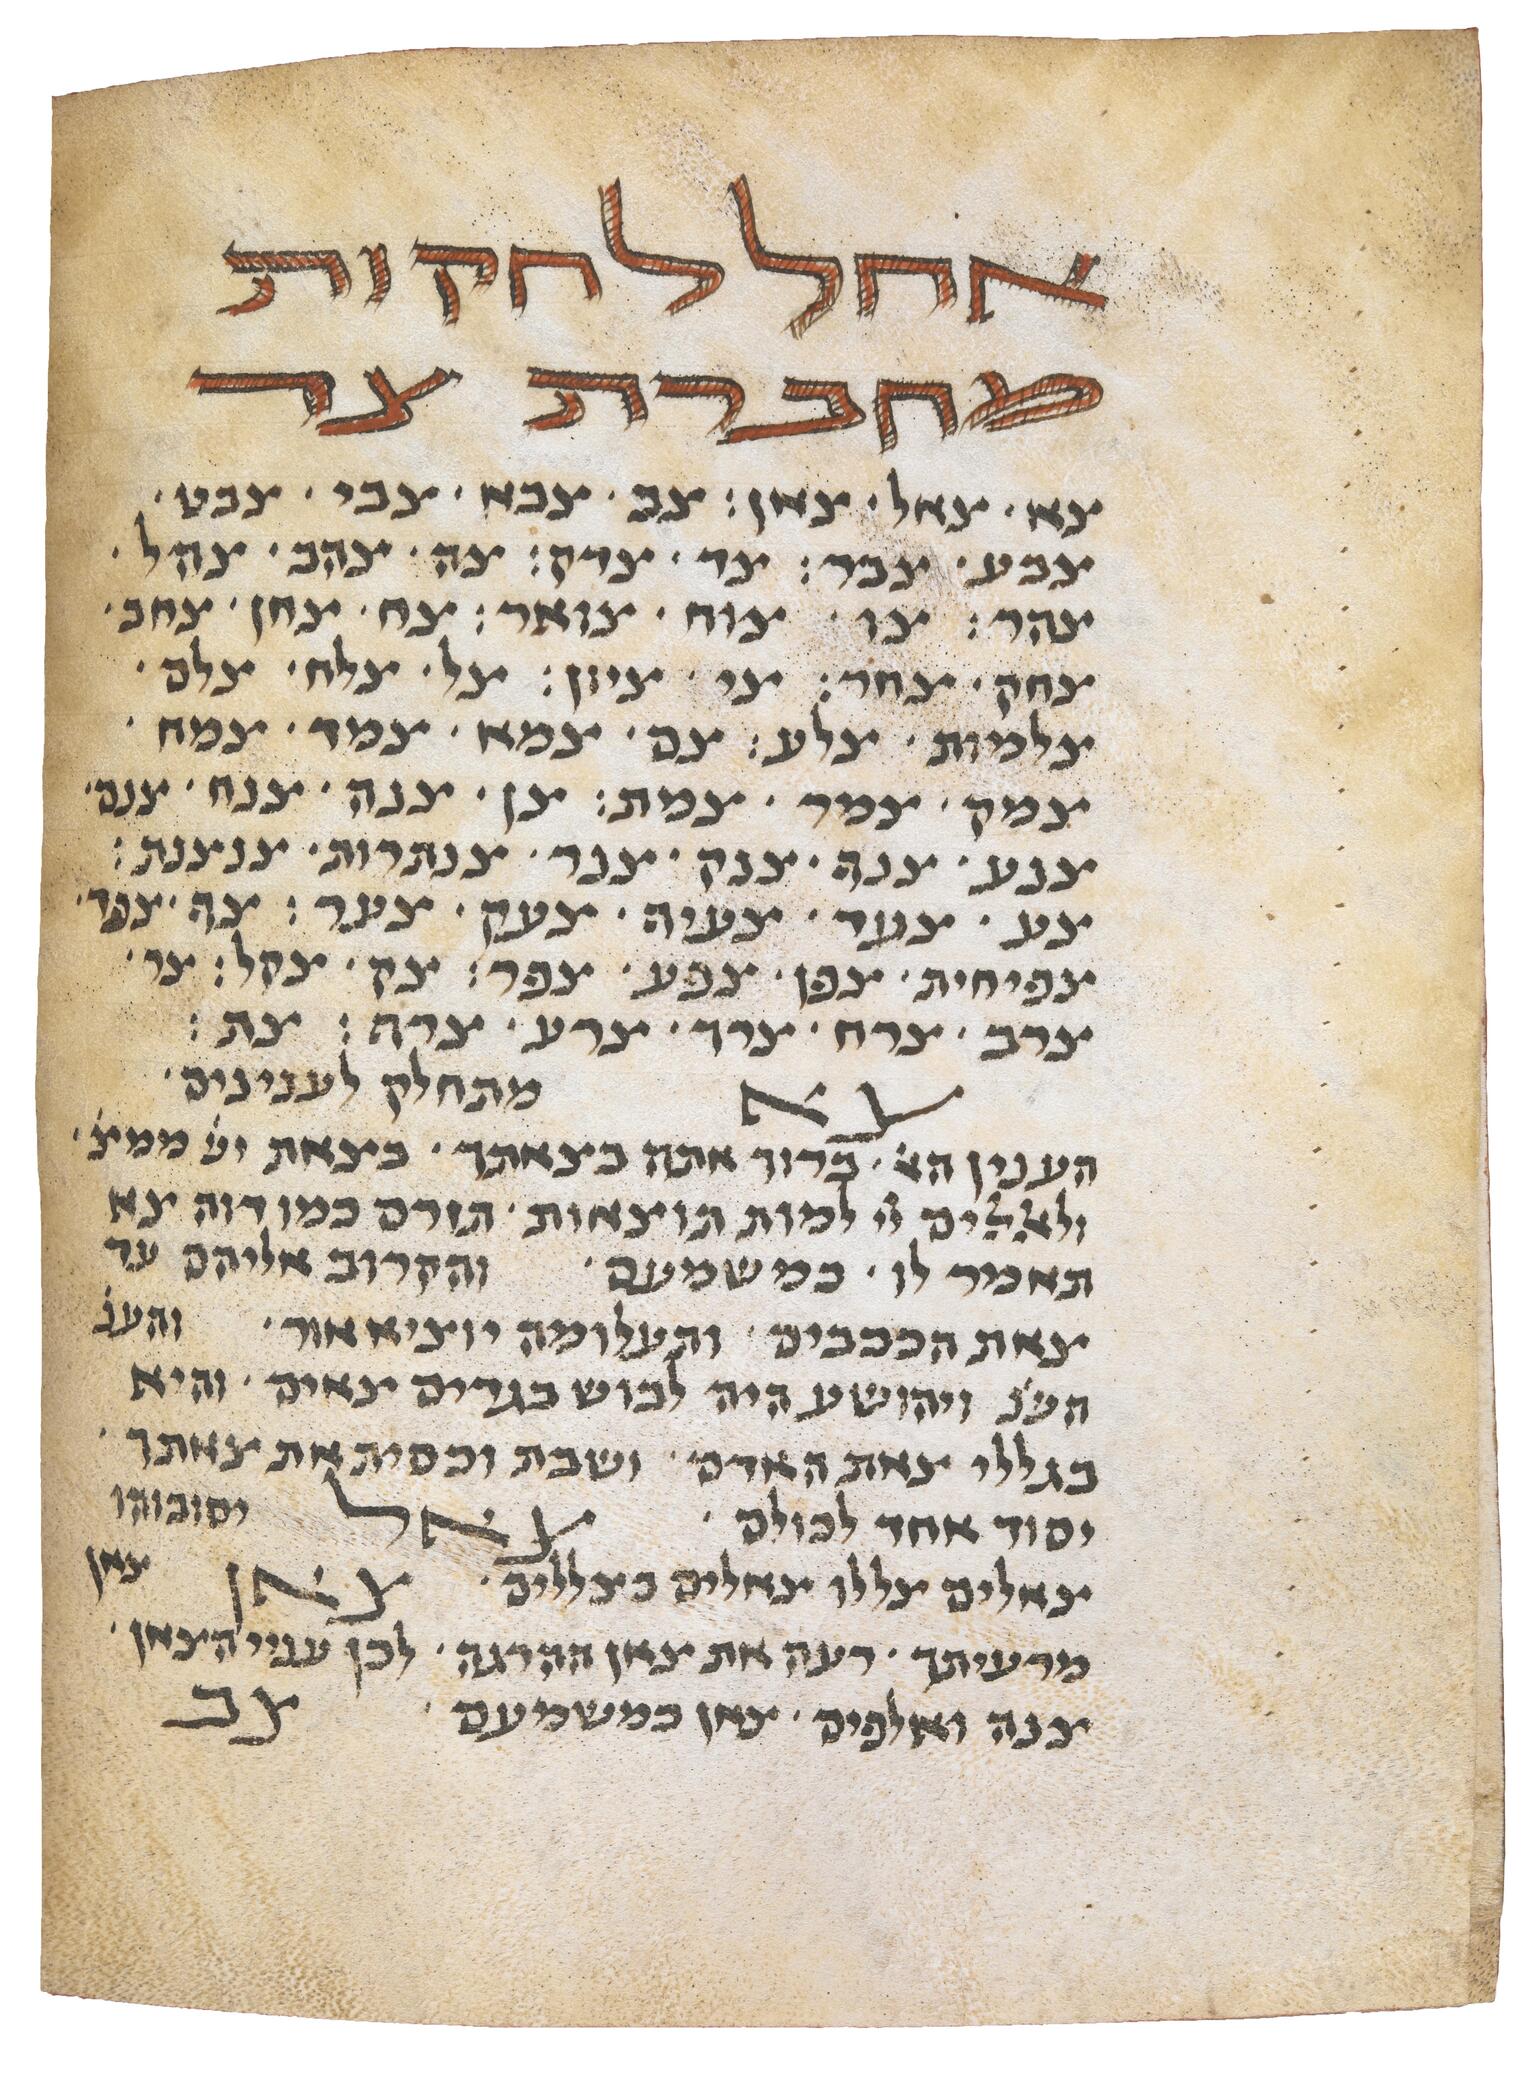 אחל לחקות
מחברת צד
צא · צאל · צאן : צב · צבא · צבי · צבט ·
צבע · צבר : צד · צדק : צה · צהב · צהל ·
צהר : צו · צוח · צואר : צח · צחן · צחב ·
צחק · צחר : צי · ציון : צל · צלח · צלם ·
צלמות · צלע : צם · צמא · צמד · צמח ·
צמק · צמר · צמת : צן · צנה · צנח · צנם ·
צנע · צנף · צנק · צנר · צנתרות · צנצנת :
צע · צעד · צעיה · צעק · צער : צף · צפד ·
צפיחית · צפן · צפע · צפר : צק · צקל : צר ·
צרב · צרח · צרך · צרע · צרף : צת :
צא מתחלק לענינים ·
הענין הא׳ · ברוך אתה בצאתך · בצאת יש׳ ממצ׳ ·
למות תוצאות · תזרם כמו דוה צא
תאמר לו · כמשמעם · והקרוב אליהם עד
צאת הככבים · ותעלומה יוציא אור · והענ׳
הש׳נ ויהושע היה לבוש בגדים צאים · והיא
בגללי צאת האדם · ושבת וכסית את צאתך ·
יסוד אחד לכולם · צאל יסובוהו
צאלים צללו צאלים כצללים · צאן צאן
מרעיתך · רעה את צאן ההרגה · לכן עניי הצאן ·
צנה ואלפים · צאן כמשמעם · צב